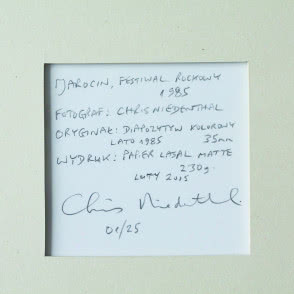 JAROCIN, FESTIWAL ROCKOWY
1985
FOTOGRAF: CHRIS NIEDENTHAL
ORYGINAŁ: DIAPOZYTYW KOLOROWY
LATO 1985 35mm
WYDRUK: PAPIER LASAL MATTE
230g.
LUTY 2015
Chris Niedenthal
01/25